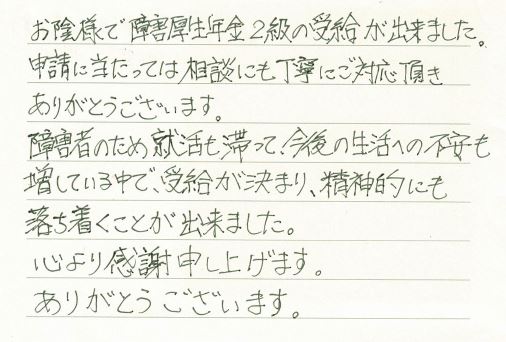 お陰様で障害厚生年金2級の受給が出来ました。
申請に当たっては相談にも丁寧にご対応頂き
ありがとうございます。
障害者のため就活も滞って、今後の生活への不安も
増している中で、受給が決まり、精神的にも
落ち着くことが出来ました。
心より感謝申し上げます。
ありがとうございます。